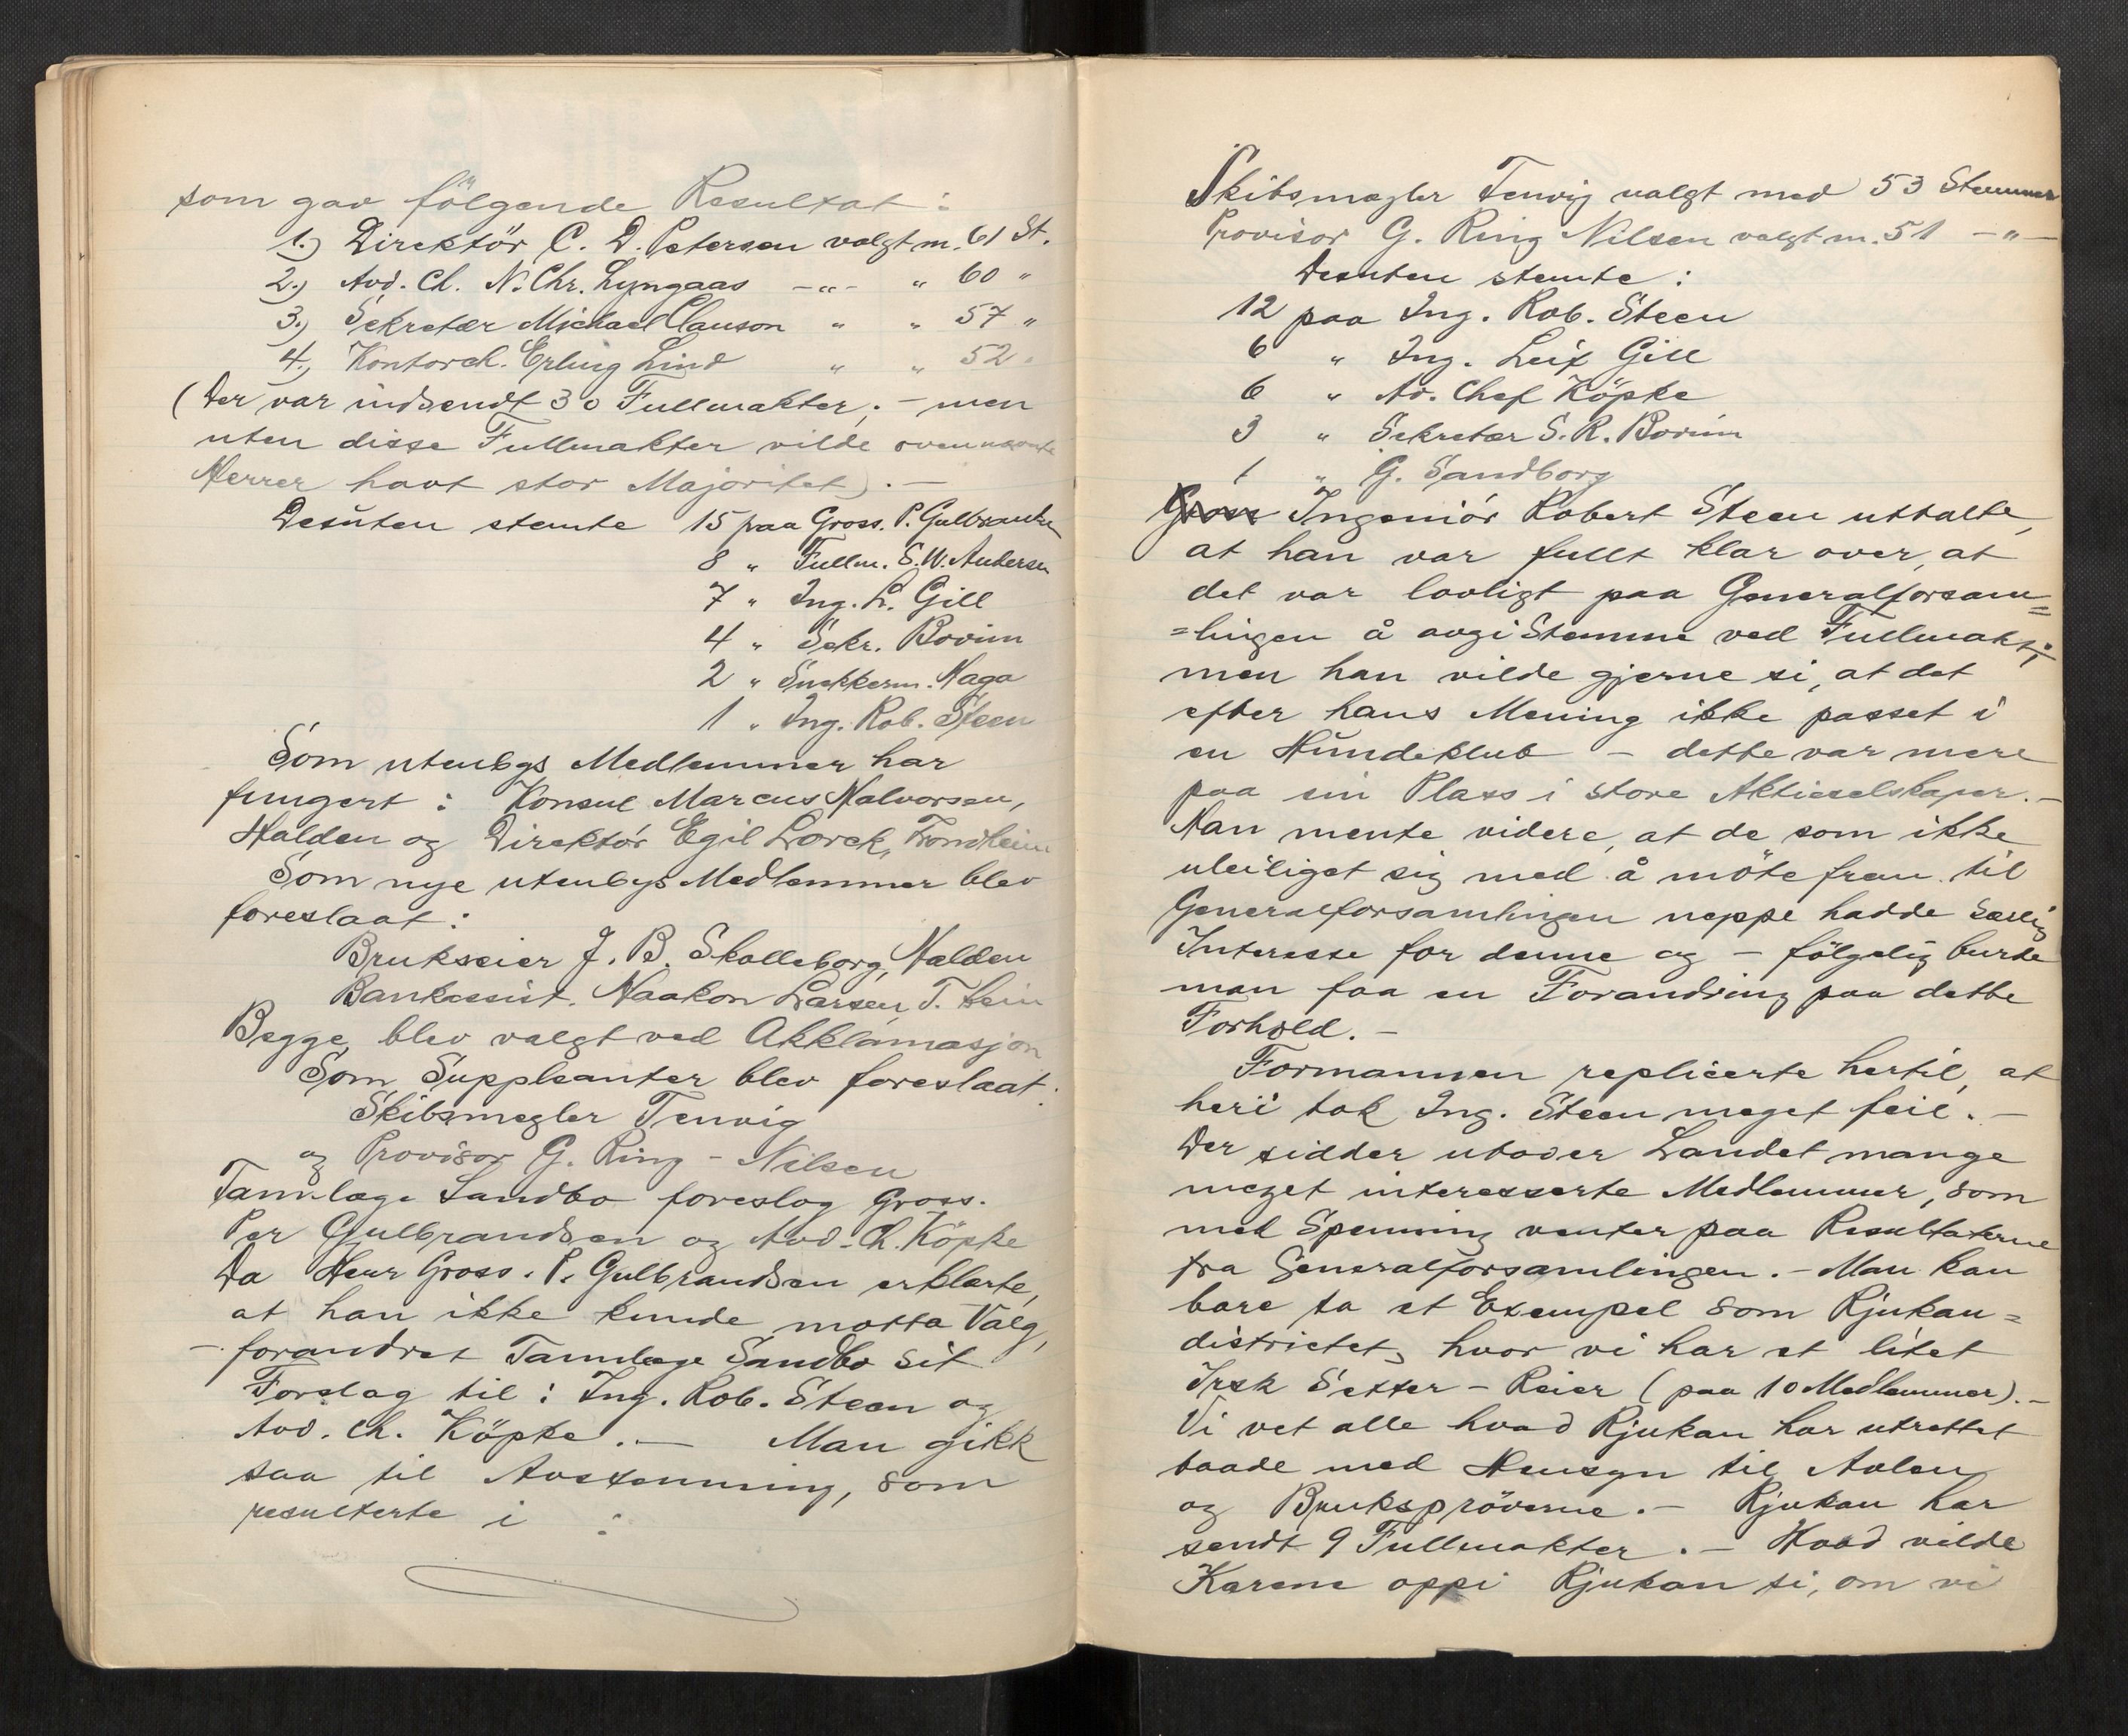 som gav fölgende Resultat:
1.) Direktör C. D. Petersen valgt m. 61 St.
2.) Avd. Ch. N. Chr. Lyngaas -"- " 60 "
3.) Sekretær Michael Clauson " " 57 "
4.) Kontorch. Erling Lind " " 52 "
(Der var indsendt 30 Fullmakter, - men
uten disse Fullmakter vilde ovennevnte
Herrer havt stor Majoritet). -
Desuten stemte 15 paa Gross. P. Gulbrandsen
8 " Fullm. S. W. Andersen
7 " Ing. L. Gill
4 " Sekr. Bovim
2 " Snekkerm. Haga
1 " Ing. Rob. Steen
Som utenbys Medlemmer har
fungert: Konsul Marcus Halvorsen,
Halden og Direktör Egil Lorck, Trondheim
Som nye utenbys Medlemmer blev
foreslaat:
Brukseier J. B. Skolleborg, Halden
Bankassist. Haakon Larsen, T. heim
Begge blev valgt ved Akklamasjon
Som Suppleanter blev foreslaat:
Skibsmegler Tenvig
og Provisor G. Ring - Nilsen
Tannlæge Sandbo foreslog Gross.
Per Gulbrandsen og Avd. Ch. Köpke
Da Herr Gross. P. Gulbrandsen erklærte,
at han ikke kunde motta Valg,
- forandret Tannlæge Sandbo sit
Forslag til: Ing. Rob. Steen og
Avd. Ch. Köpke. - Man gikk
saa til Avstemning, som
resulterte i :
Skibsmægler Tenvig valgt med 53 Stemmer
Provisor G. Ring Nilsen valgt m. 51 -"-
Desuten stemte:
12 paa Ing. Rob. Steen
6 " Ing. Leif Gill
6 " Av. Chef Köpke
3 " Sekretær S. R. Bovim
1 " G. Sandborg
Gross Ingeniör Robert Steen uttalte,
at han var fullt klar over, at
det var lovligt paa Generalforsam=
=lingen å avgi Stemme ved Fullmakt;
men han vilde gjerne si, at det
efter hans Mening ikke passet i
en Hundeklub - dette var mere
paa sin Plass i store Aktieselskaper. -
Han mente videre, at de som ikke
uleiliget sig med å möte frem til
Generalforsamlingen neppe hadde særlig
Interesse for denne og - fölgelig burde
man faa en Forandring paa dette
Forhold. -
Formannen replicerte hertil, at
heri tok Ing. Steen meget feil. -
Der sidder utover Landet mange
meget interesserte Medlemmer, som
med Spenning venter paa Resultaterne
fra Generalforsamlingen. - Man kan
bare ta et Exempel som Rjukan=
districtet, hvor vi har et litet
Irsk Setter - Reier (paa 10 Medlemmer). -
Vi vet alle hvad Rjukan har utrettet
baade med Hensyn til Avlen
og Bruksprövene. - Rjukan har
sendt 9 Fullmakter. - Hvad vilde
Karene oppi Rjukan si, om vi